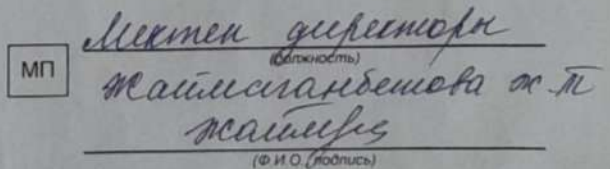 Мектеп директоры
(должность)
МП
Жаймаганбетова Ж.Т
(Ф.И.О. (подпись)